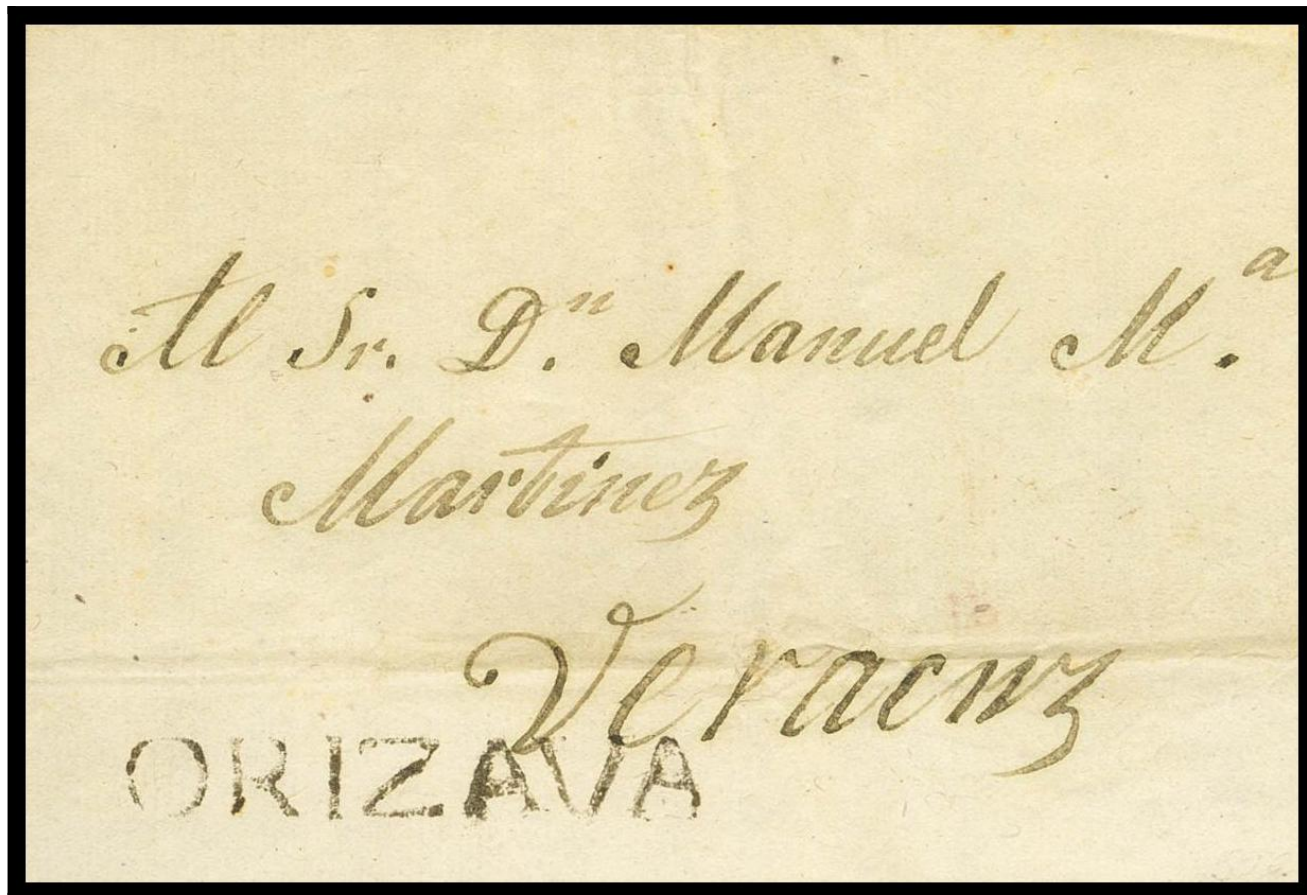 Al Sr. D.ⁿ Manuel M.ᵃ
Martinez
Veracruz
ORIZAVA